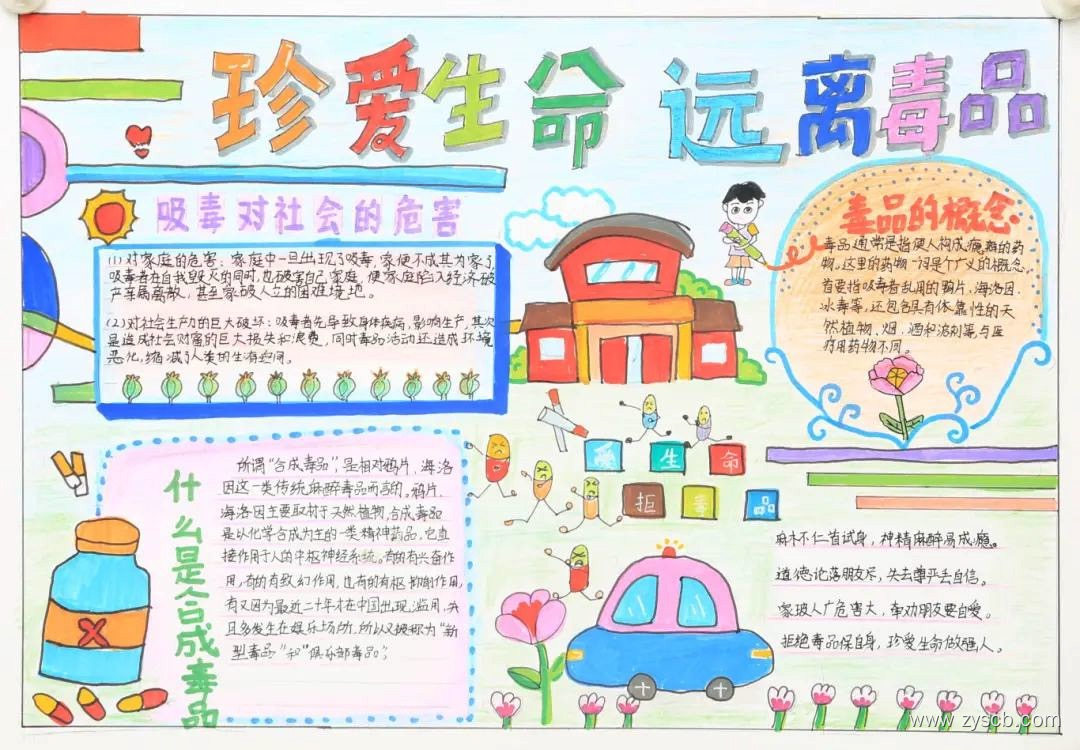 珍爱生命 远离毒品
吸毒对社会的危害
(1)对家庭的危害:家庭中一旦出现了吸毒,家便不成其为家了,
吸毒者在自我毁灭的同时,也破害自己家庭,使家庭陷入经济破
产亲痛离散,甚至家破人亡的困难境地。
(2)对社会生产力的巨大破坏:吸毒者先导致身体疾病,影响生产,其次
是造成社会财富的巨大损失和浪费,同时毒品活动还造成环境
恶化,缩减了人类的生存空间。
毒品的概念
毒品通常是指使人构成瘾癖的药
物。这里的药物一词是个广义的概念
首要指吸毒者乱用的鸦片,海洛因,
冰毒等,还包含具有依靠性的天
然植物、烟、酒和溶剂等,与医
疗用药物不同。
什么是合成毒品
所谓“合成毒品”,是相对鸦片、海洛
因这一类传统麻醉毒品而言的。鸦片、
海洛因主要取材于天然植物,合成毒品
是以化学合成为主的一类精神药品,它直
接作用于人的中枢神经系统。有的有兴奋作
用,有的有致幻作用,也有的有抑制作用,
有又因为最近二十年才在中国出现、滥用,并
且多发生在娱乐场所,所以又被称为“新
型毒品”和“俱乐部毒品”。
生 命
拒 毒 品
麻木不仁首试身,神精麻醉易成瘾。
道德沦落朋友尽,失去尊严丢自信。
家破人亡危害大,奉劝朋友要自爱。
拒绝毒品保自身,珍爱生命做强人。
www.zyscb.com